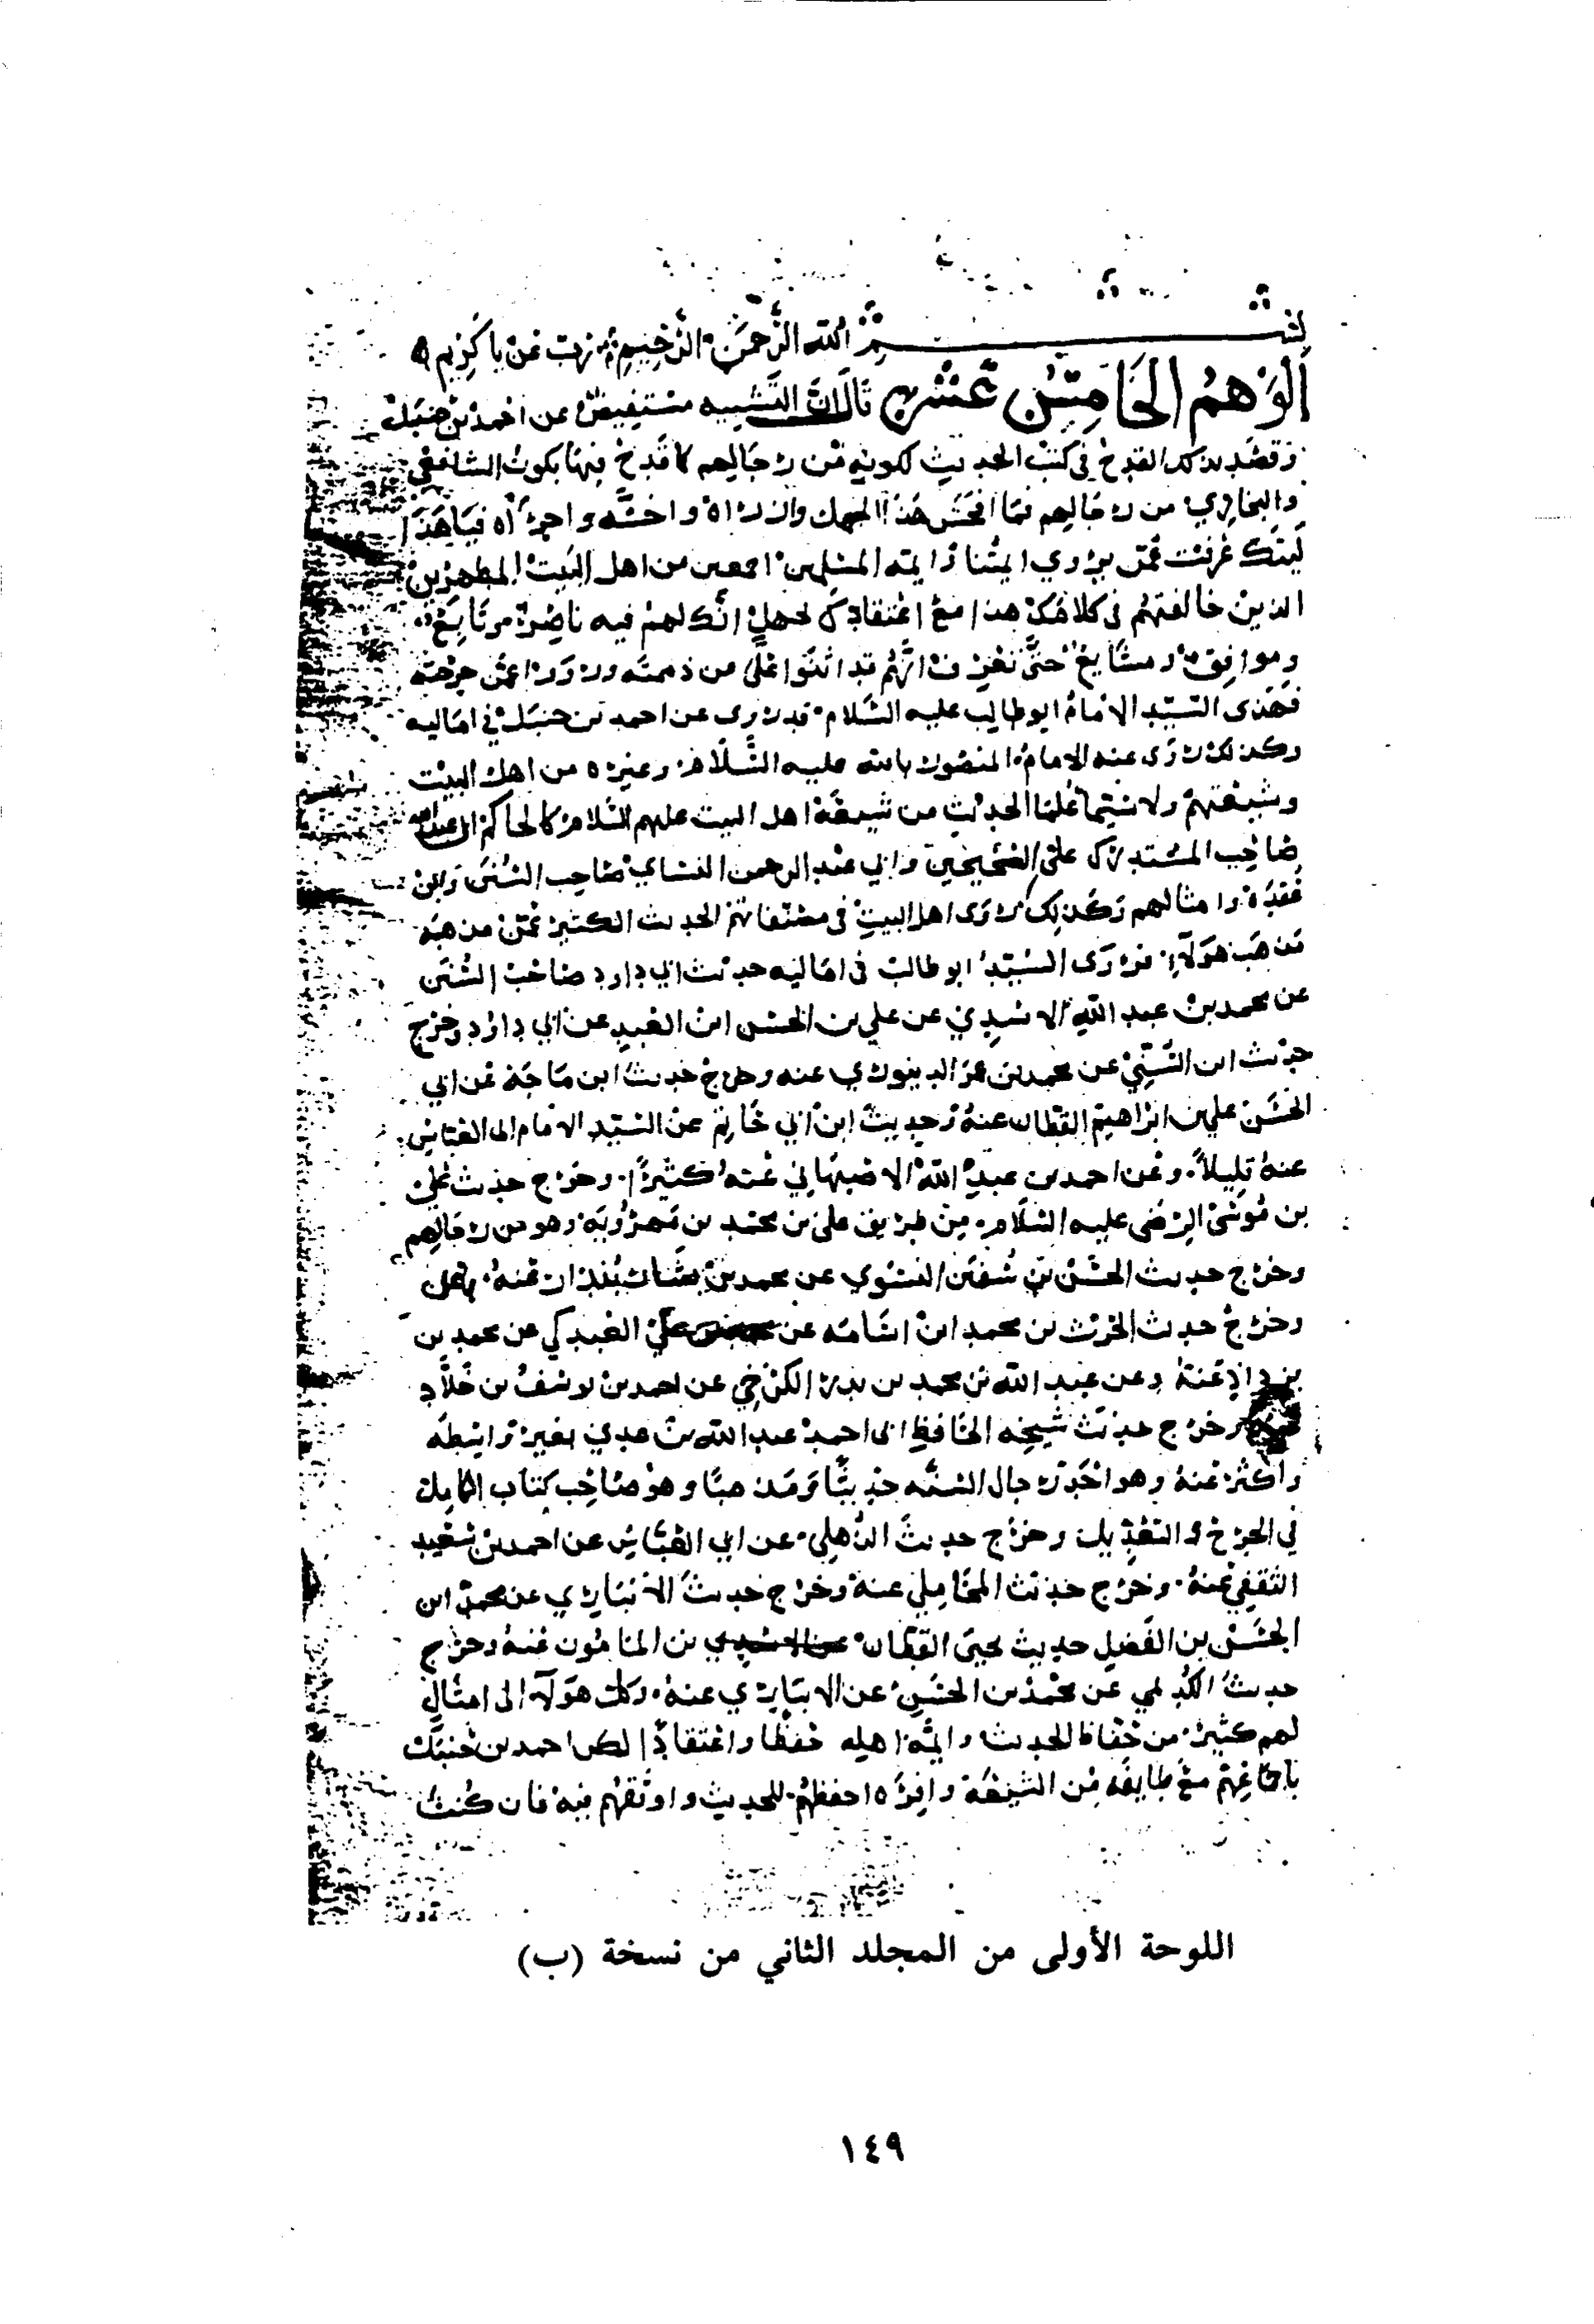 بسم الله الرحمن الرحيم رب عن يا كريم
الوهم الخامس عشر قال ان التشبيه مستفيض عن احمد بن حنبل
وقصد بذلك القدح في كتب الحديث لكونه من رجالهم كما قدح فيها بكون الشافعي
والبخاري من رجالهم فما افحش هذا الجهل وازراه واخسه واجرأه فيا هذا
ليتك عرفت عمن يروي ايمتنا وايمة المسلمين اجمعين من اهل البيت المطهرين
الذين خالفتهم في كلامك هذا مع اعتقادك لجهل انك لهم فيه ناصر ومتابع
وموافق ومشايع حتى تعرف انهم قد اثنوا على من ذممته ورووا عمن جرحته
فهذى السيد الامام ابو طالب عليه السلام قد روى عن احمد بن حنبل في اماليه
وكذلك روى عنه الامام المنصور بالله عليه السلام وغيره من اهل البيت
وشيعتهم ولا سيما علما الحديث من شيعة اهل البيت عليهم السلام كالحاكم ابي عبدالله
صاحب المستدرك على الصحيحين وابي عبد الرحمن النساي صاحب السنن وابن
عقدة وامثالهم وكذلك روى اهل البيت في مصنفاتهم الحديث الكثير عمن مذهبه
مذهب هولاء فروى السيد ابو طالب في اماليه حديث ابي داود صاحب السنن
عن محمد بن عبد الله الاسدي عن علي بن الحسن ابن العبد عن ابي داود وخرج
حديث ابن السني عن محمد بن عمر الدينوري عنه وخرج حديث ابن ماجة عن ابي
الحسن علي بن ابراهيم القطان عنه وحديث ابن ابي حاتم عن السيد الامام ابي العباس
عنه قليلا وعن احمد بن عبد الله الاصبهاني عنه كثيرا وخرج حديث علي
بن موسى الرضى عليه السلام من طريق علي بن محمد بن مهرويه وهو من رجالهم
وخرج حديث الحسن بن سفين النسوي عن محمد بن بشار بندار عنه
وخرج حديث الحرث بن محمد ابن اسامة عن علي العبدكي عن محمد بن
يزداذ عنه وعن عبد الله بن محمد بن بدر الكرخي عن احمد بن يوسف بن خلاد
وخرج حديث شيخه الحافظ ابي احمد عبد الله بن عدي بغير واسطة
واكثر عنه وهو احد رجال السنة حديثا ومذهبا وهو صاحب كتاب الكامل
في الجرح والتعديل وخرج حديث الذهلي عن ابي العباس عن احمد بن سعيد
الثقفي عنه وخرج حديث المحاملي عنه وخرج حديث الانباري عن محمد ابن
الحسن بن الفضل حديث يحيى القطان بن المامون عنه وخرج
حديث الكديمي عن محمد بن الحسن عن الانباري عنه وكل هولاء الى امثال
لهم كثير من حفاظ الحديث وايمة اهله حفظا واعتقادا لكن احمد بن حنبل
باجماعهم مع طايفة من الشيعة وافرة احفظهم للحديث واوثقهم فيه فان كنت
اللوحة الأولى من المجلد الثاني من نسخة (ب)
١٤٩